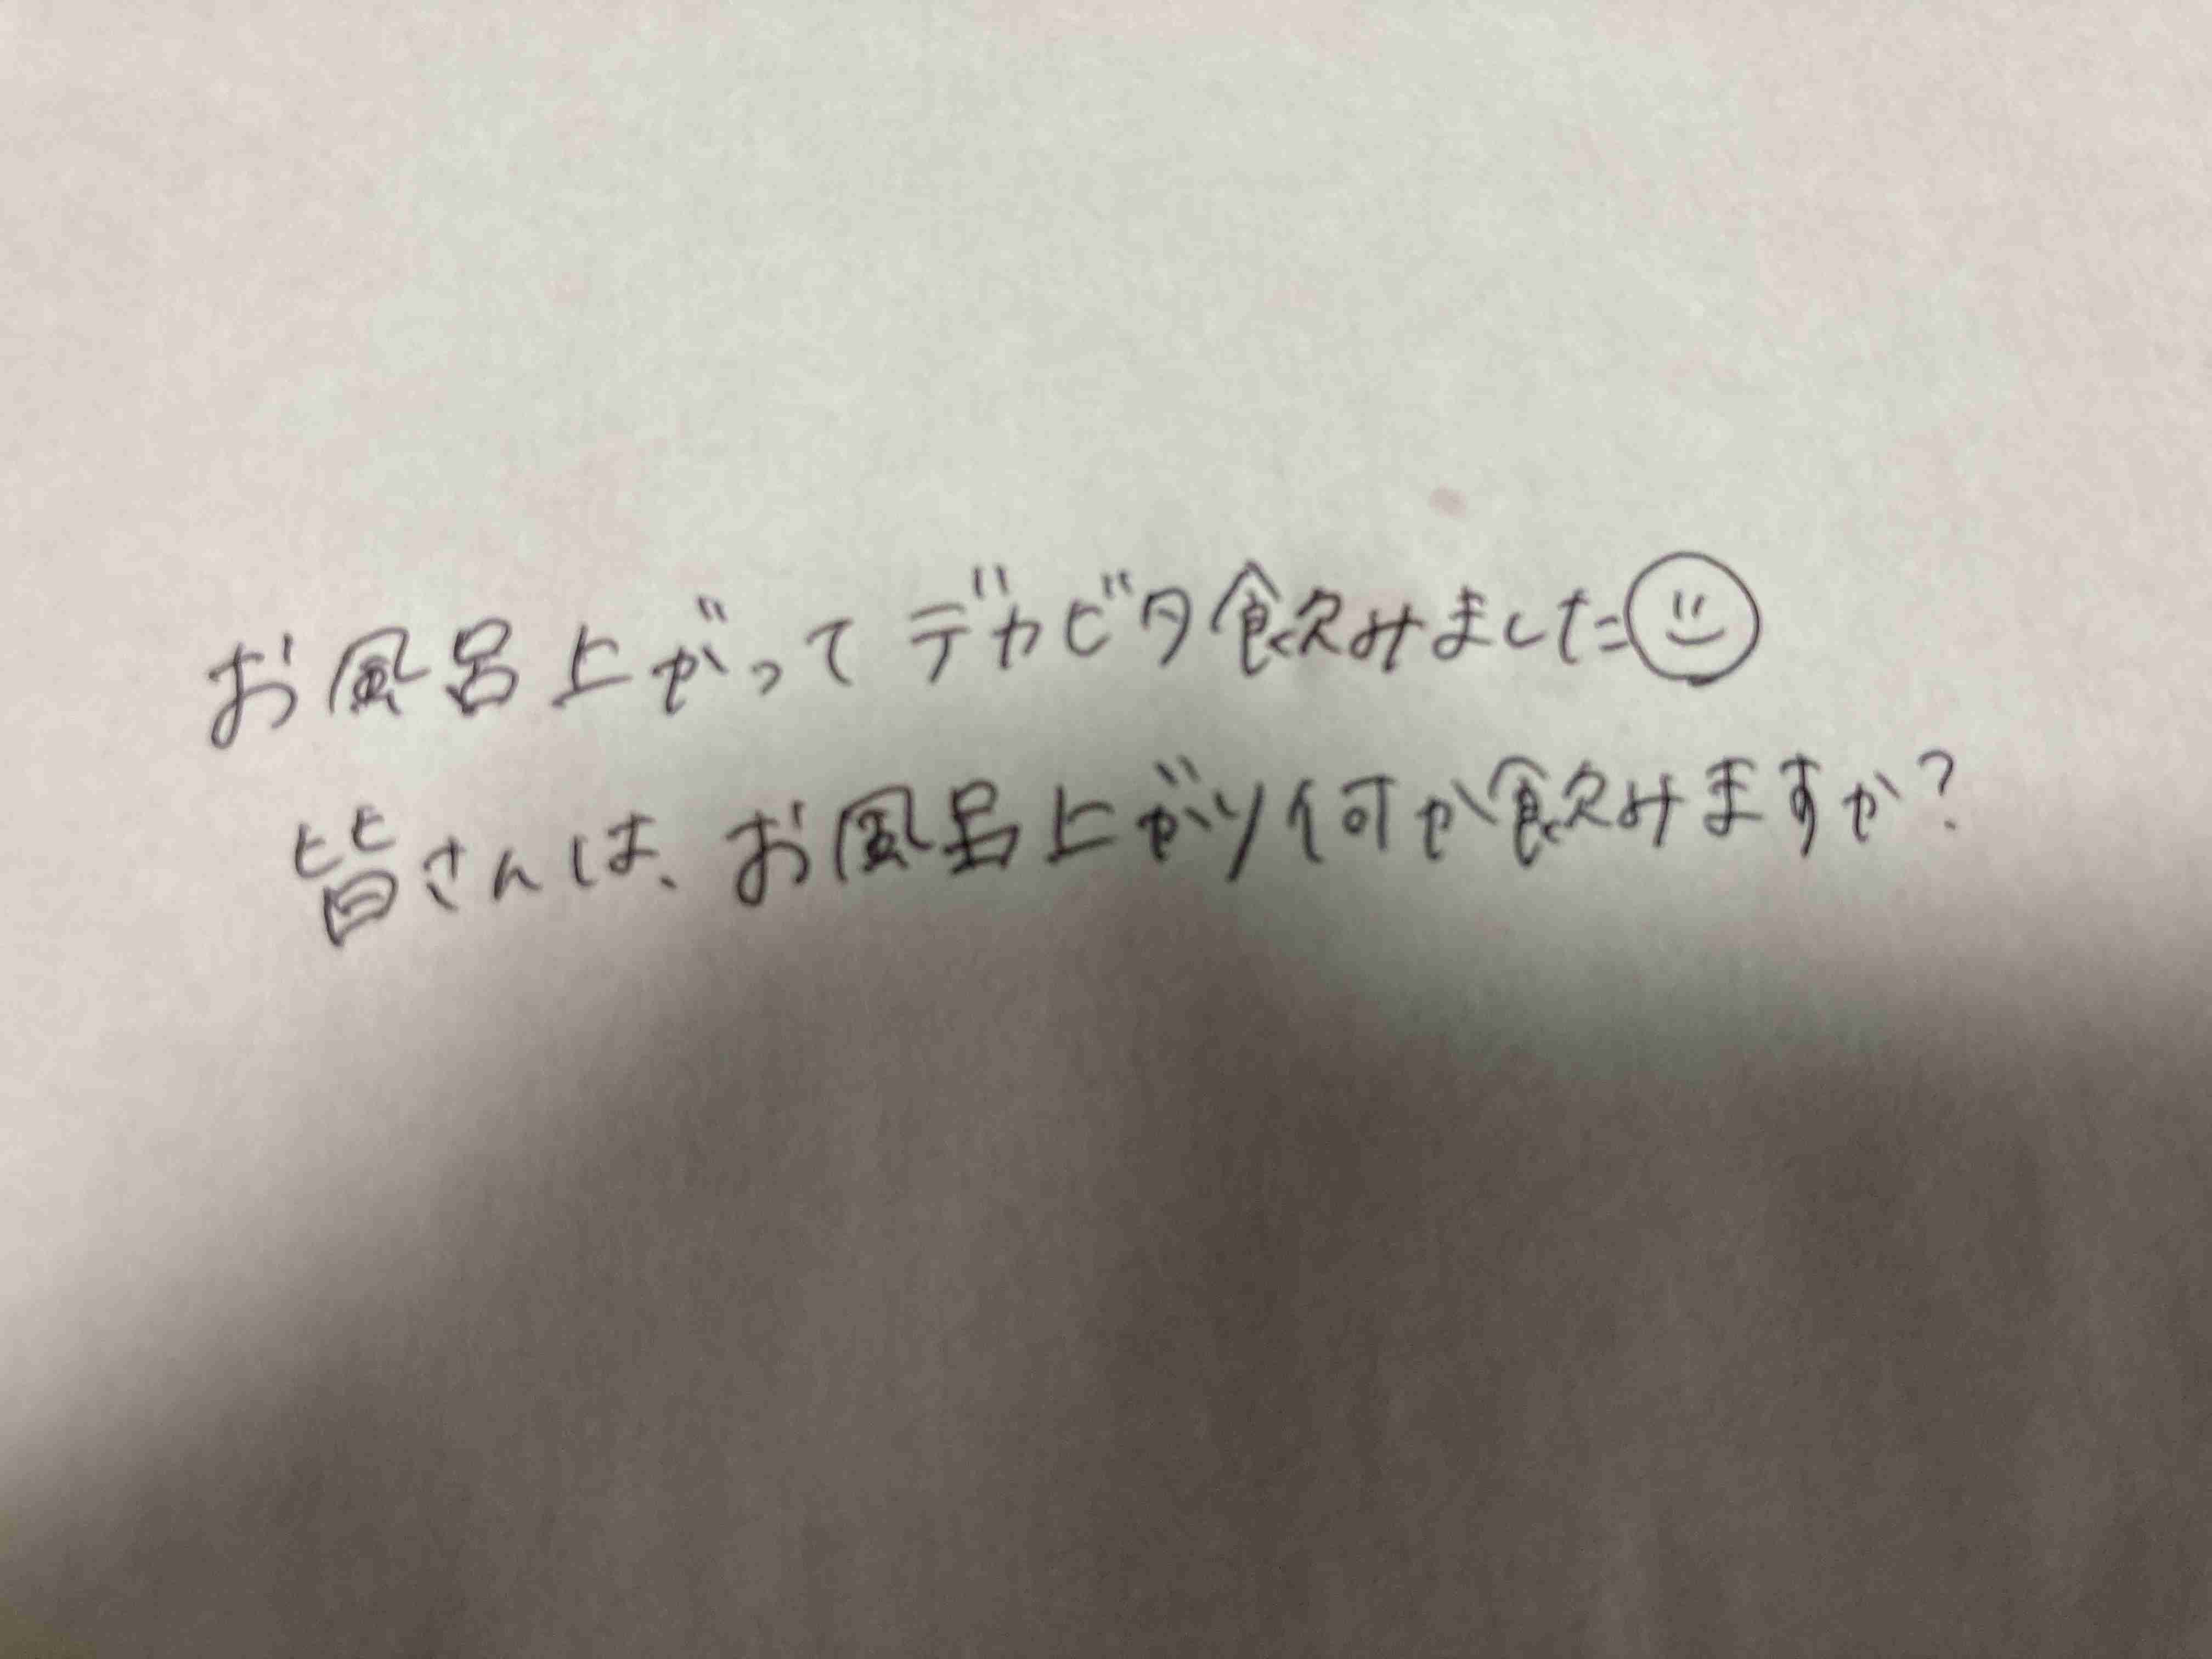 お風呂上がってデカビタ飲みました☺
皆さんは、お風呂上がり何か飲みますか?